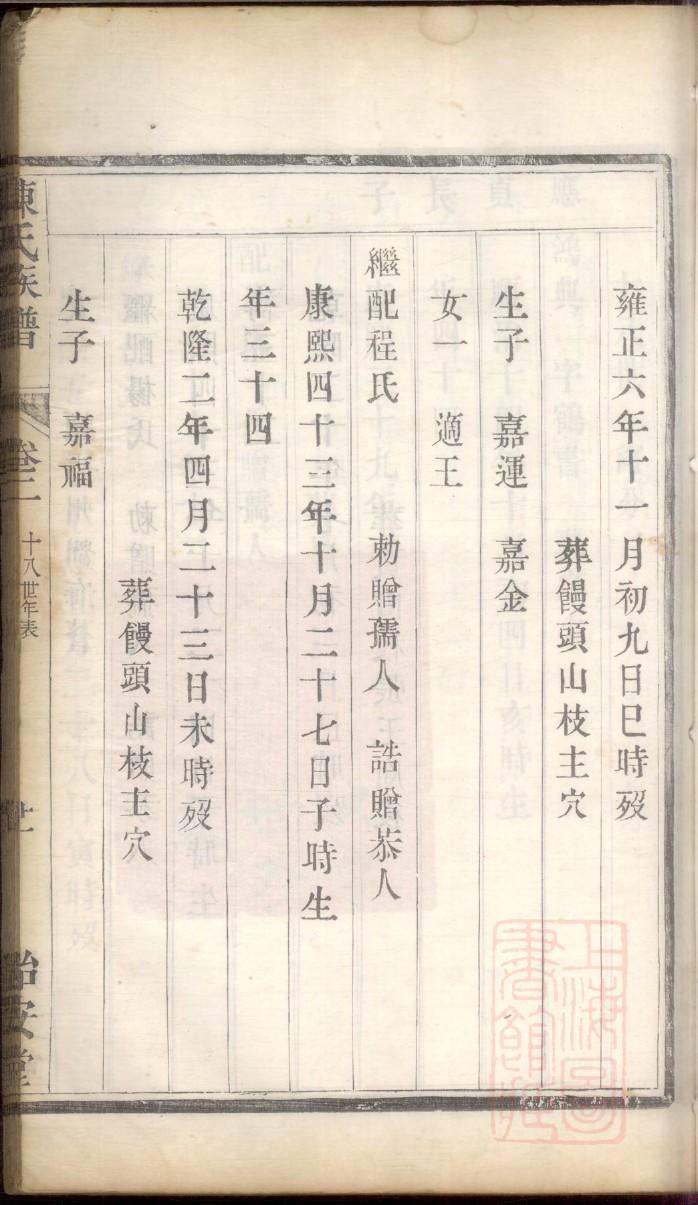 雍正六年十一月初九日巳時歿
葬饅頭山枝主穴
生子　嘉運　嘉金
女一　適王
繼配程氏　勅贈孺人　誥贈恭人
康熙四十三年十月二十七日子時生
年三十四
乾隆二年四月二十三日未時歿
葬饅頭山枝主穴
生子　嘉福
陳氏族譜　卷二　十八世年表　廿　怡安堂
上海圖書館藏